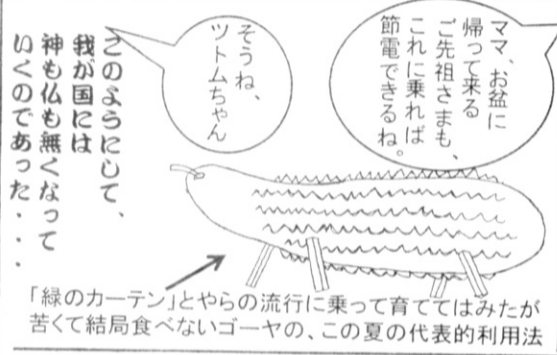 ママ、お盆に
帰って来る
ご先祖さまも、
これに乗れば
節電できるね。
そうね、
ツトムちゃん
このようにして、
我が国には
神も仏も無くなって
いくのであった・・・
「緑のカーテン」とやらの流行に乗って育ててはみたが
苦くて結局食べないゴーヤの、この夏の代表的利用法